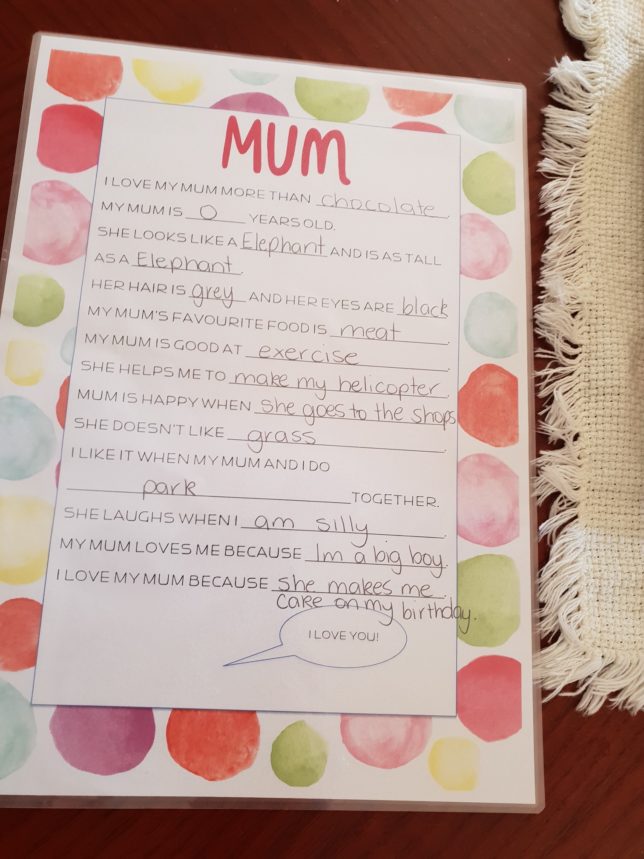 MUM
I LOVE MY MUM MORE THAN chocolate.
MY MUM IS 0 YEARS OLD.
SHE LOOKS LIKE A Elephant AND IS AS TALL
AS A Elephant.
HER HAIR IS grey AND HER EYES ARE black
MY MUM'S FAVOURITE FOOD IS meat.
MY MUM IS GOOD AT exercise.
SHE HELPS ME TO make my helicopter.
MUM IS HAPPY WHEN she goes to the shops
SHE DOESN'T LIKE grass.
I LIKE IT WHEN MY MUM AND I DO
park TOGETHER.
SHE LAUGHS WHEN I am silly.
MY MUM LOVES ME BECAUSE Im a big boy.
I LOVE MY MUM BECAUSE she makes me.
cake on my birthday.
I LOVE YOU!